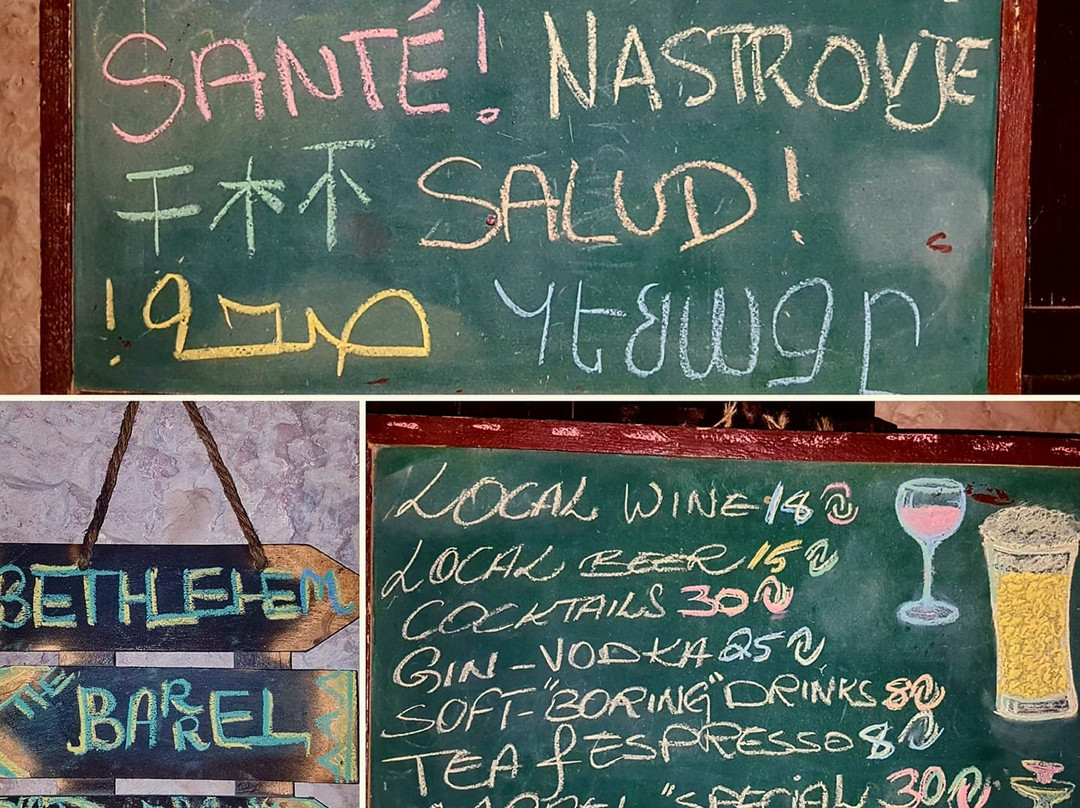 SANTÉ! NASTROVJE
干杯 SALUD!
BETHLEHEM
THE BARREL
LOCAL WINE 18 ₪
LOCAL BEER 15 ₪
COCKTAILS 30 ₪
GIN-VODKA 25 ₪
SOFT-"BORING" DRINKS 8 ₪
TEA & ESPRESSO 8 ₪
"SPECIAL 30 ₪